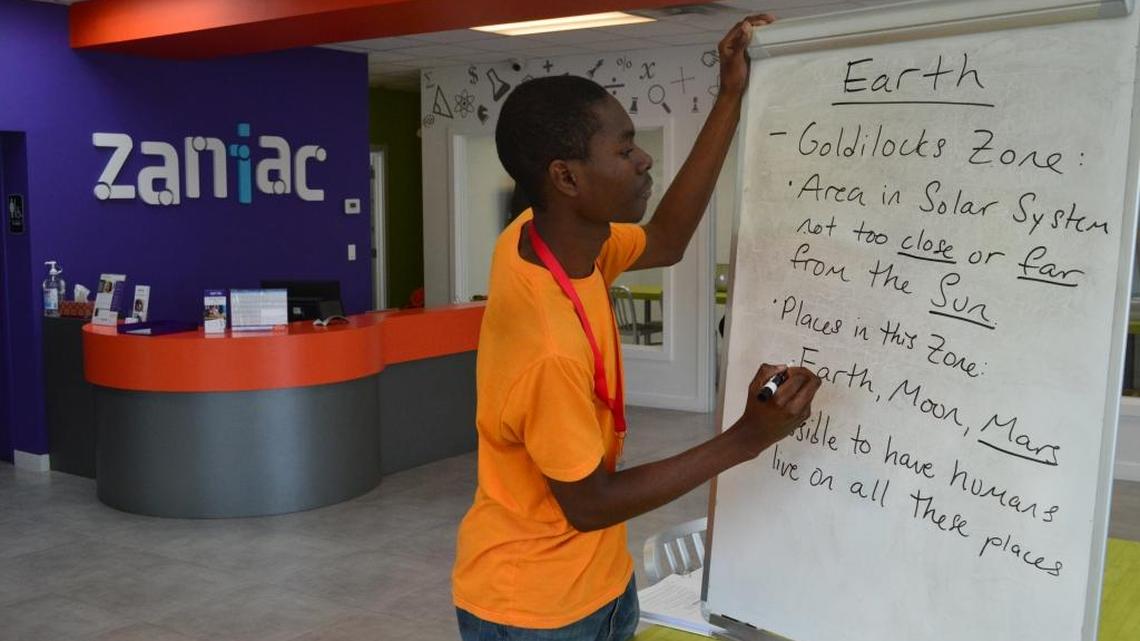 zaniac
Earth
- Goldilocks Zone:
· Area in Solar System
not too close or far
from the Sun.
· Places in this Zone:
Earth, Moon, Mars
live on all these places
to have humans